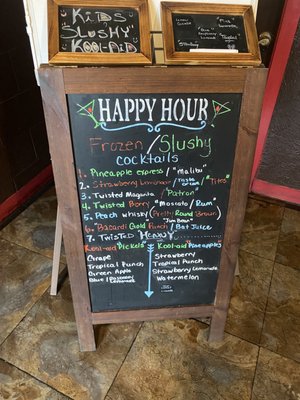 KiDS
SLUSHY
KOOL-AID
HAPPY HOUR
Frozen / Slushy
cocktails
1. Pineapple express / "Malibu"
2. Strawberry Lemonade / "Tito's"
3. Twisted Magarita / "Patron"
4. Twisted Berry / Moscato / Rum
5. Peach whisky (Pretty Round Brown)
"Jim Beam"
6. Bacardi Gold Punch / Bat Juice
7. TwiSTED HENNY
Kool-aid Pickels Kool-aid Pineapples
Grape Strawberry
Tropical Punch Tropical Punch
Green Apple Strawberry Lemonade
Blue Raspberry Lemonade Watermelon